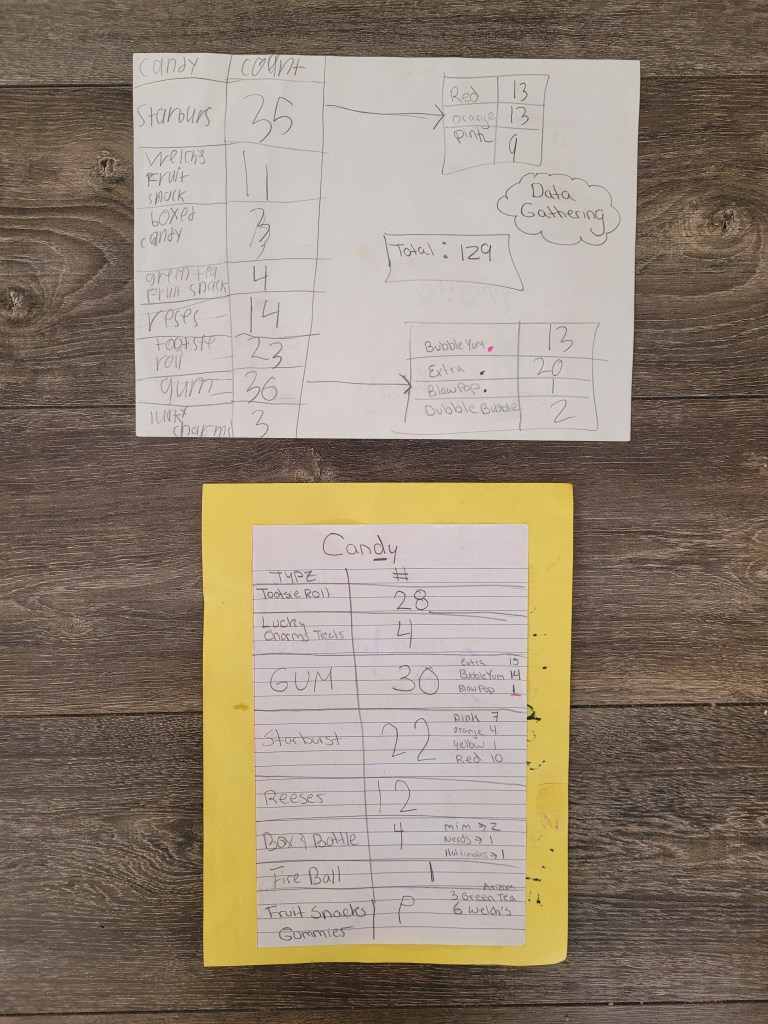 candy count
Starburs 35
Welchs
Fruit
snack 11
boxed
candy 3
green tea
Fruit snack 4
reses 14
tootsie
roll 23
gum 36
charms 3
Red 13
orange 13
pink 9
Data
Gathering
Total: 129
Bubble Yum 13
Extra 20
BlowPop 1
Dubble Bubble 2
Candy
TYPE #
Tootsie Roll 28
Lucky
Charms Treats 4
GUM 30
Extra 15
Bubble Yum 14
Blow Pop 1
Starburst 22
pink 7
orange 4
yellow 1
Red 10
Reeses 12
Box & Bottle 4
mim → 2
Nerds → 1
→ 1
Fire Ball 1
Fruit Snacks
Gummies
Arizona
3 Green Tea
6 Welch's